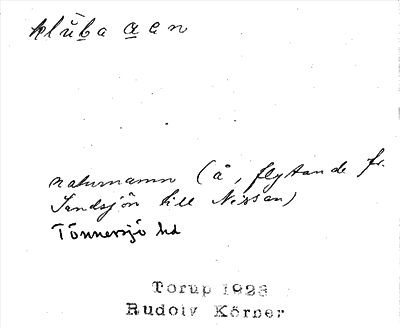 klŭba a̲ en
naturnamn (å, flytande fr.
Sandsjön till Nissan)
Tönnersjö hd
Torup 1928
Rudolv Körner